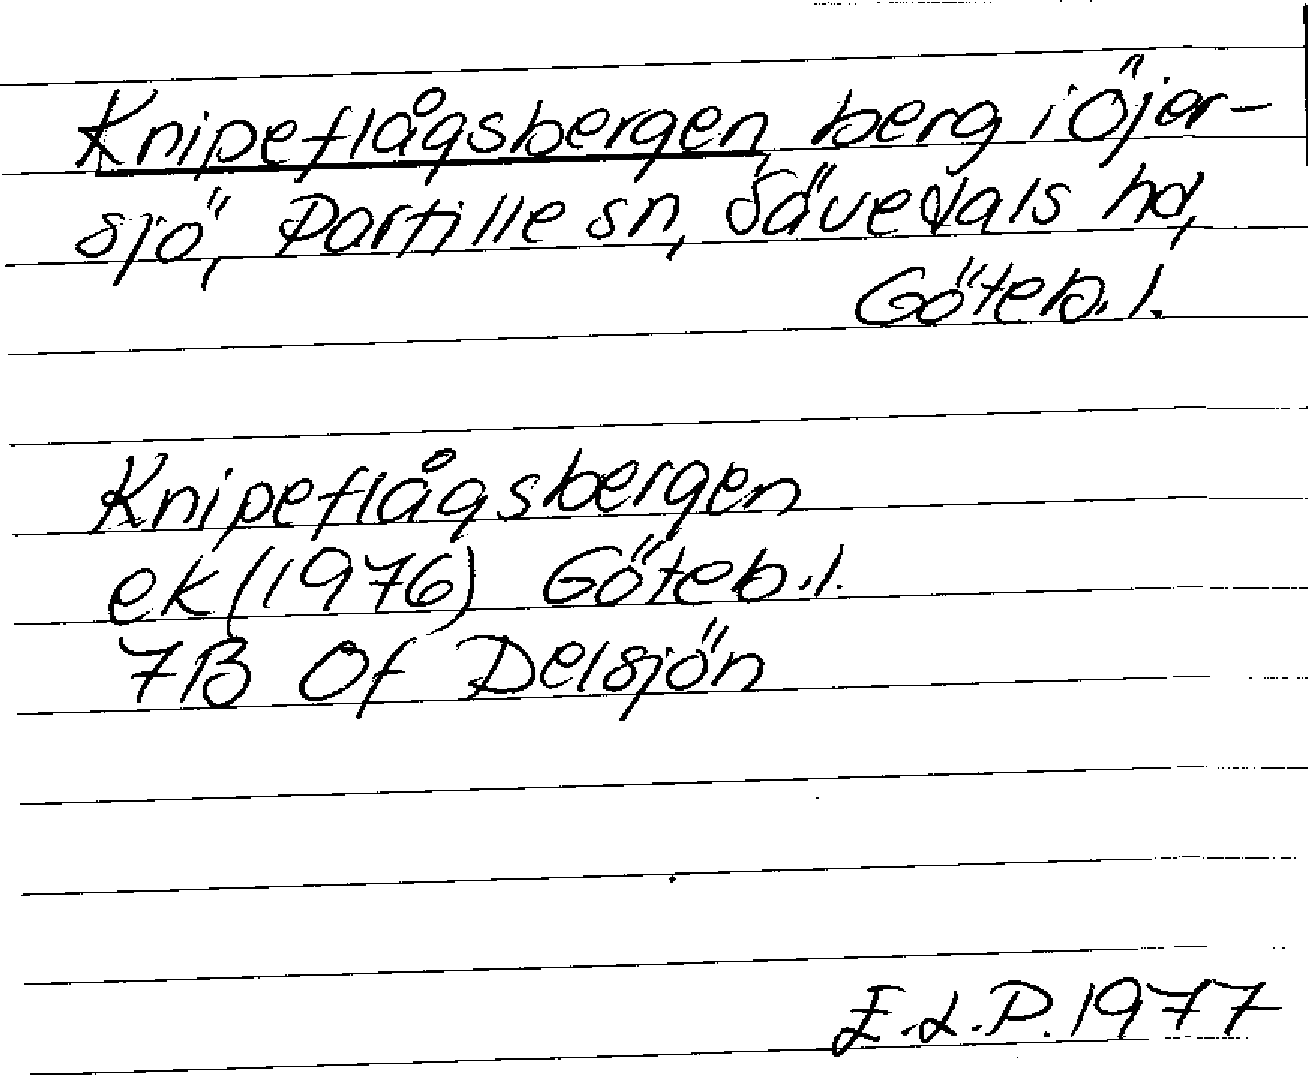 Knipeflågsbergen, berg i Öjer-
sjö, Partille sn, Sävedals hd,
Göteb. l.
Knipeflågsbergen
ek (1976) Göteb. l.
7B 0f Delsjön
E.L.P. 1977